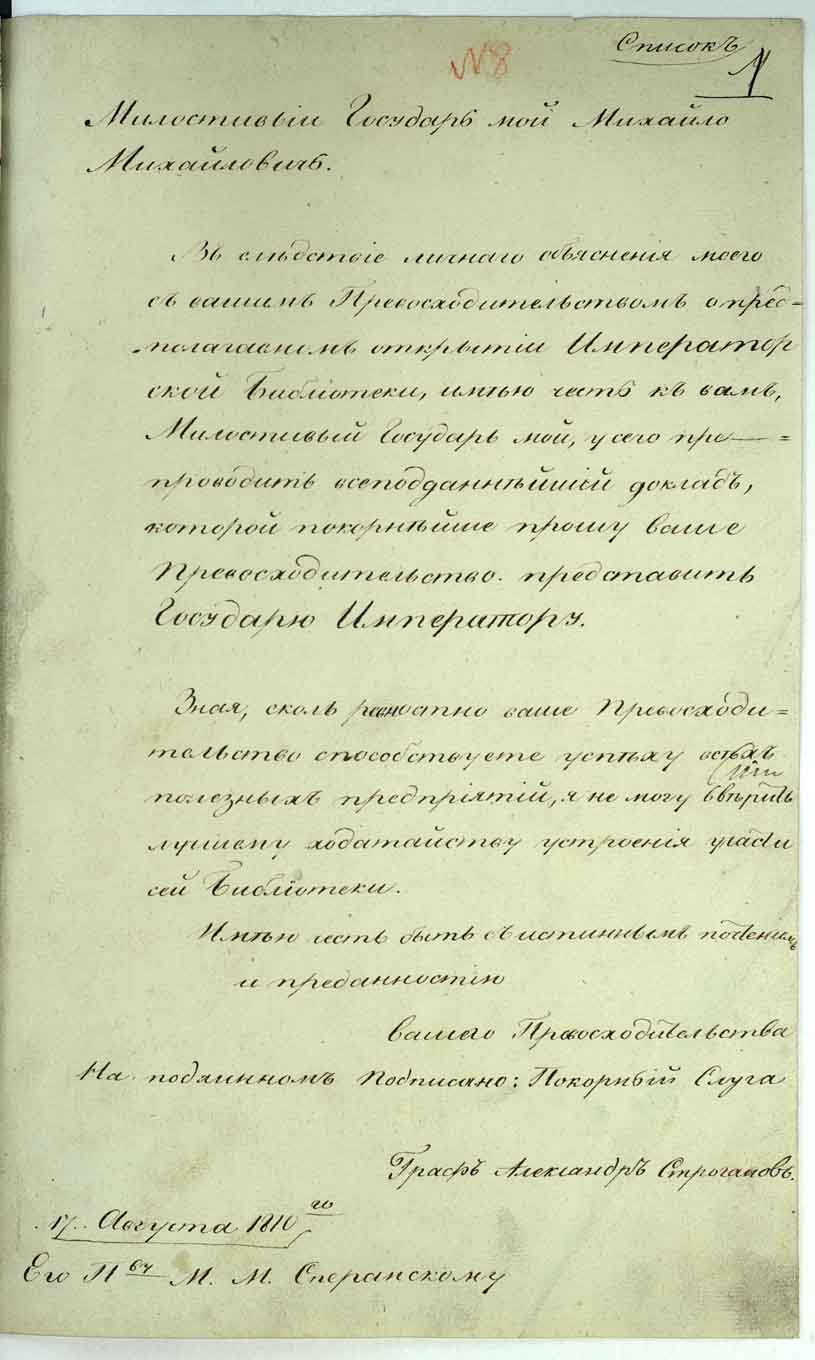 Списокъ
№8
1
Милостивый Государь мой Михайло
Михайловичь.
Въ слѣдствіе личнаго объясненія моего
съ вашимъ Превосходительствомъ о пред=
полагаемомъ открытіи Император
ской Библіотеки, имѣю честь къ вамъ,
Милостивый Государь мой, у сего пре=
проводить всеподданнѣйшій докладъ,
которой покорнѣйше прошу ваше
Превосходительство представить
Государю Императору.
Зная, сколь ревностно ваше Превосходи=
тельство способствуете успѣху всѣхъ
полезныхъ предпріятій, я не могу ввѣрить
лучшему ходатайству устроенія участи
сей Библіотеки.
Имѣю честь быть съ истиннымъ почтеніемъ
и преданностію
вашего Превосходительства
На подлинномъ Подписано: Покорный Слуга
Графъ Александръ Строгановъ.
17. Августа 1810го
Его Пву М. М. Сперанскому